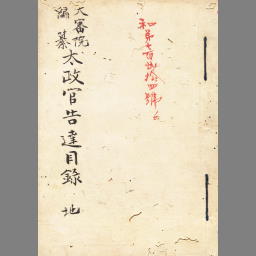 和第七百弐拾四號
大審院
編纂
太政官告達目錄 地